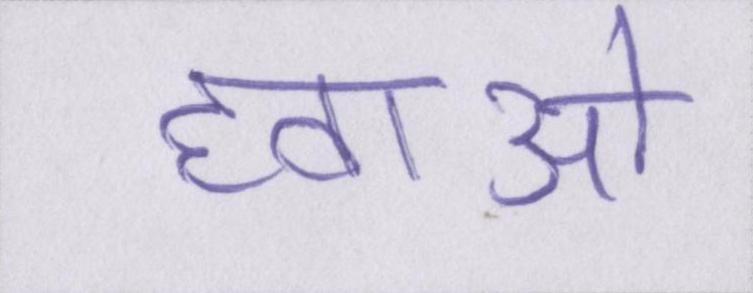 हवाओ